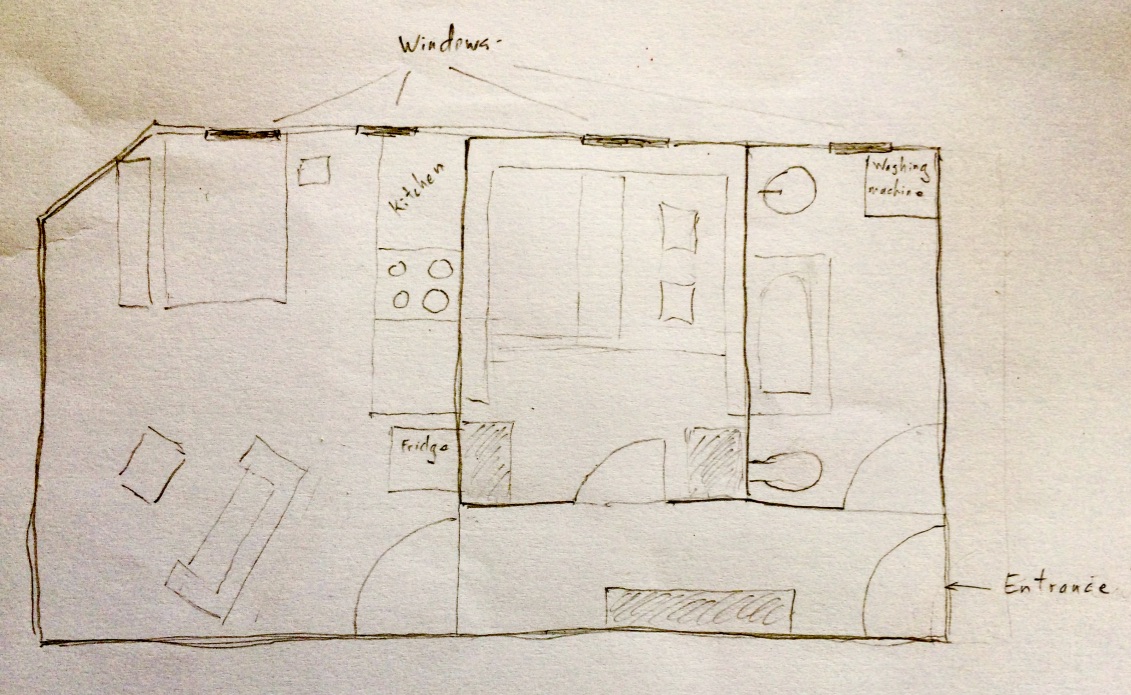 Windows
Kitchen
Washing
machine
Fridge
Entrance